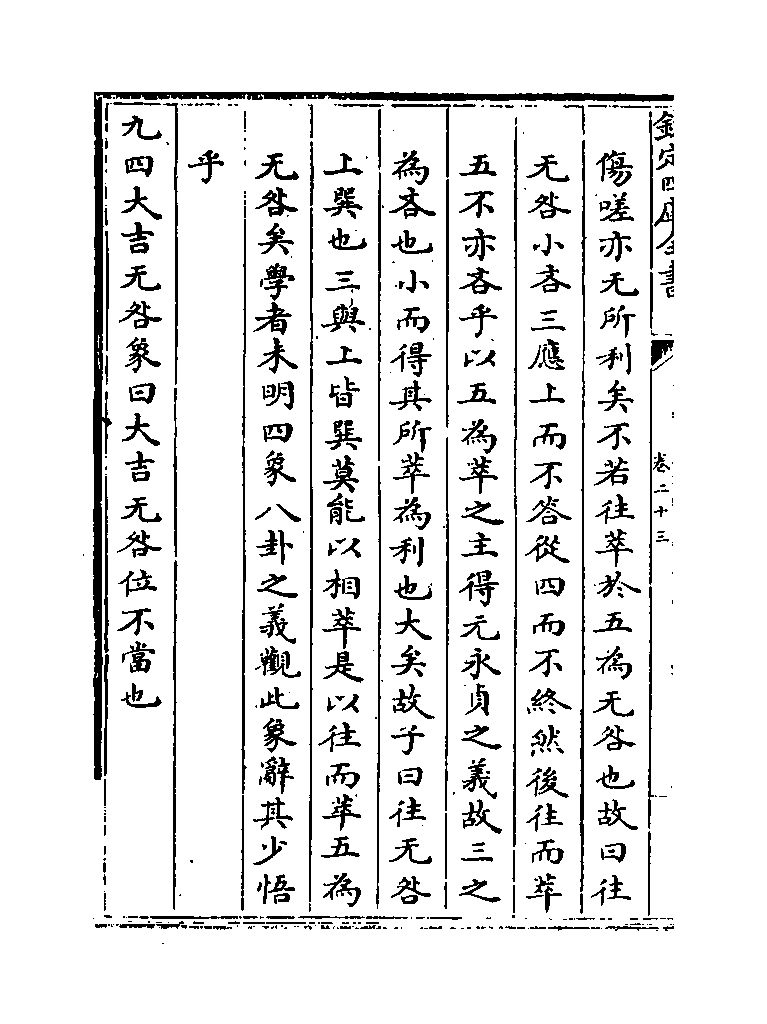 欽定四庫全書
卷二十三
傷嗟亦无所利矣不若往萃於五為无咎也故曰往
无咎小吝三應上而不答從四而不終然後往而萃
五不亦吝乎以五為萃之主得元永貞之義故三之
為吝也小而得其所萃為利也大矣故子曰往无咎
上巽也三與上皆巽莫能以相萃是以往而萃五為
无咎矣學者未明四象八卦之義觀此象辭其少悟
乎
九四大吉无咎象曰大吉无咎位不當也